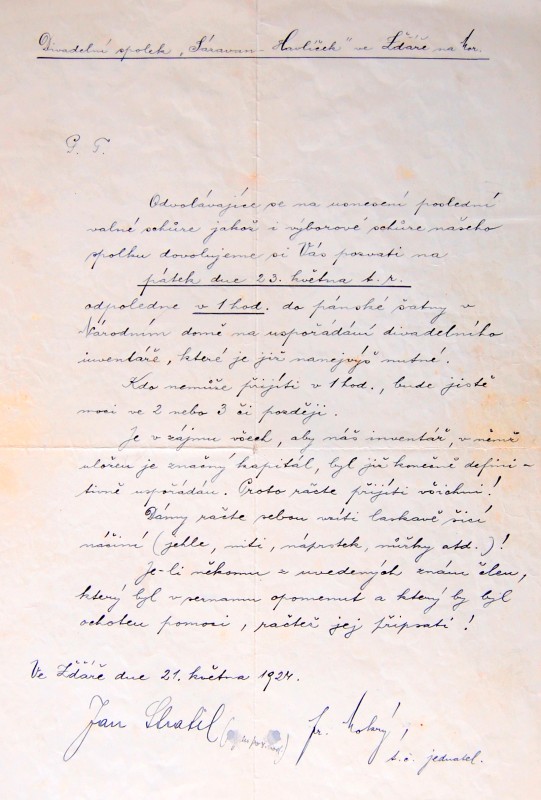 Divadelní spolek „Sáravan - Havlíček" ve Ždáře na Mor.
P. T.
Odvolávajíce se na usnesení poslední
valné schůze jakož i výborové schůze našeho
spolku dovolujeme si Vás pozvati na
pátek dne 23. května t. r.
odpoledne v 1 hod. do pánské šatny v
Národním domě na uspořádání divadelního
inventáře, které je již nanejvýš nutné.
Kdo nemůže přijíti v 1 hod., bude jistě
moci ve 2 nebo 3 či později.
Je v zájmu všech, aby náš inventář, v němž
uložen je značný kapitál, byl již konečně defini-
tivně uspořádán. Proto račte přijíti všichni!
Dámy račte sebou vzíti laskavě šicí
náčiní (jehle, niti, náprstek, nůžky atd.)!
Je-li někomu z uvedených znám člen,
který byl v seznamu opomenut a který by byl
ochoten pomoci, račtež jej připsati!
Ve Ždáře dne 21. května 1924.
Jan Stratil
fr. Mokrý,
t. č. jednatel.